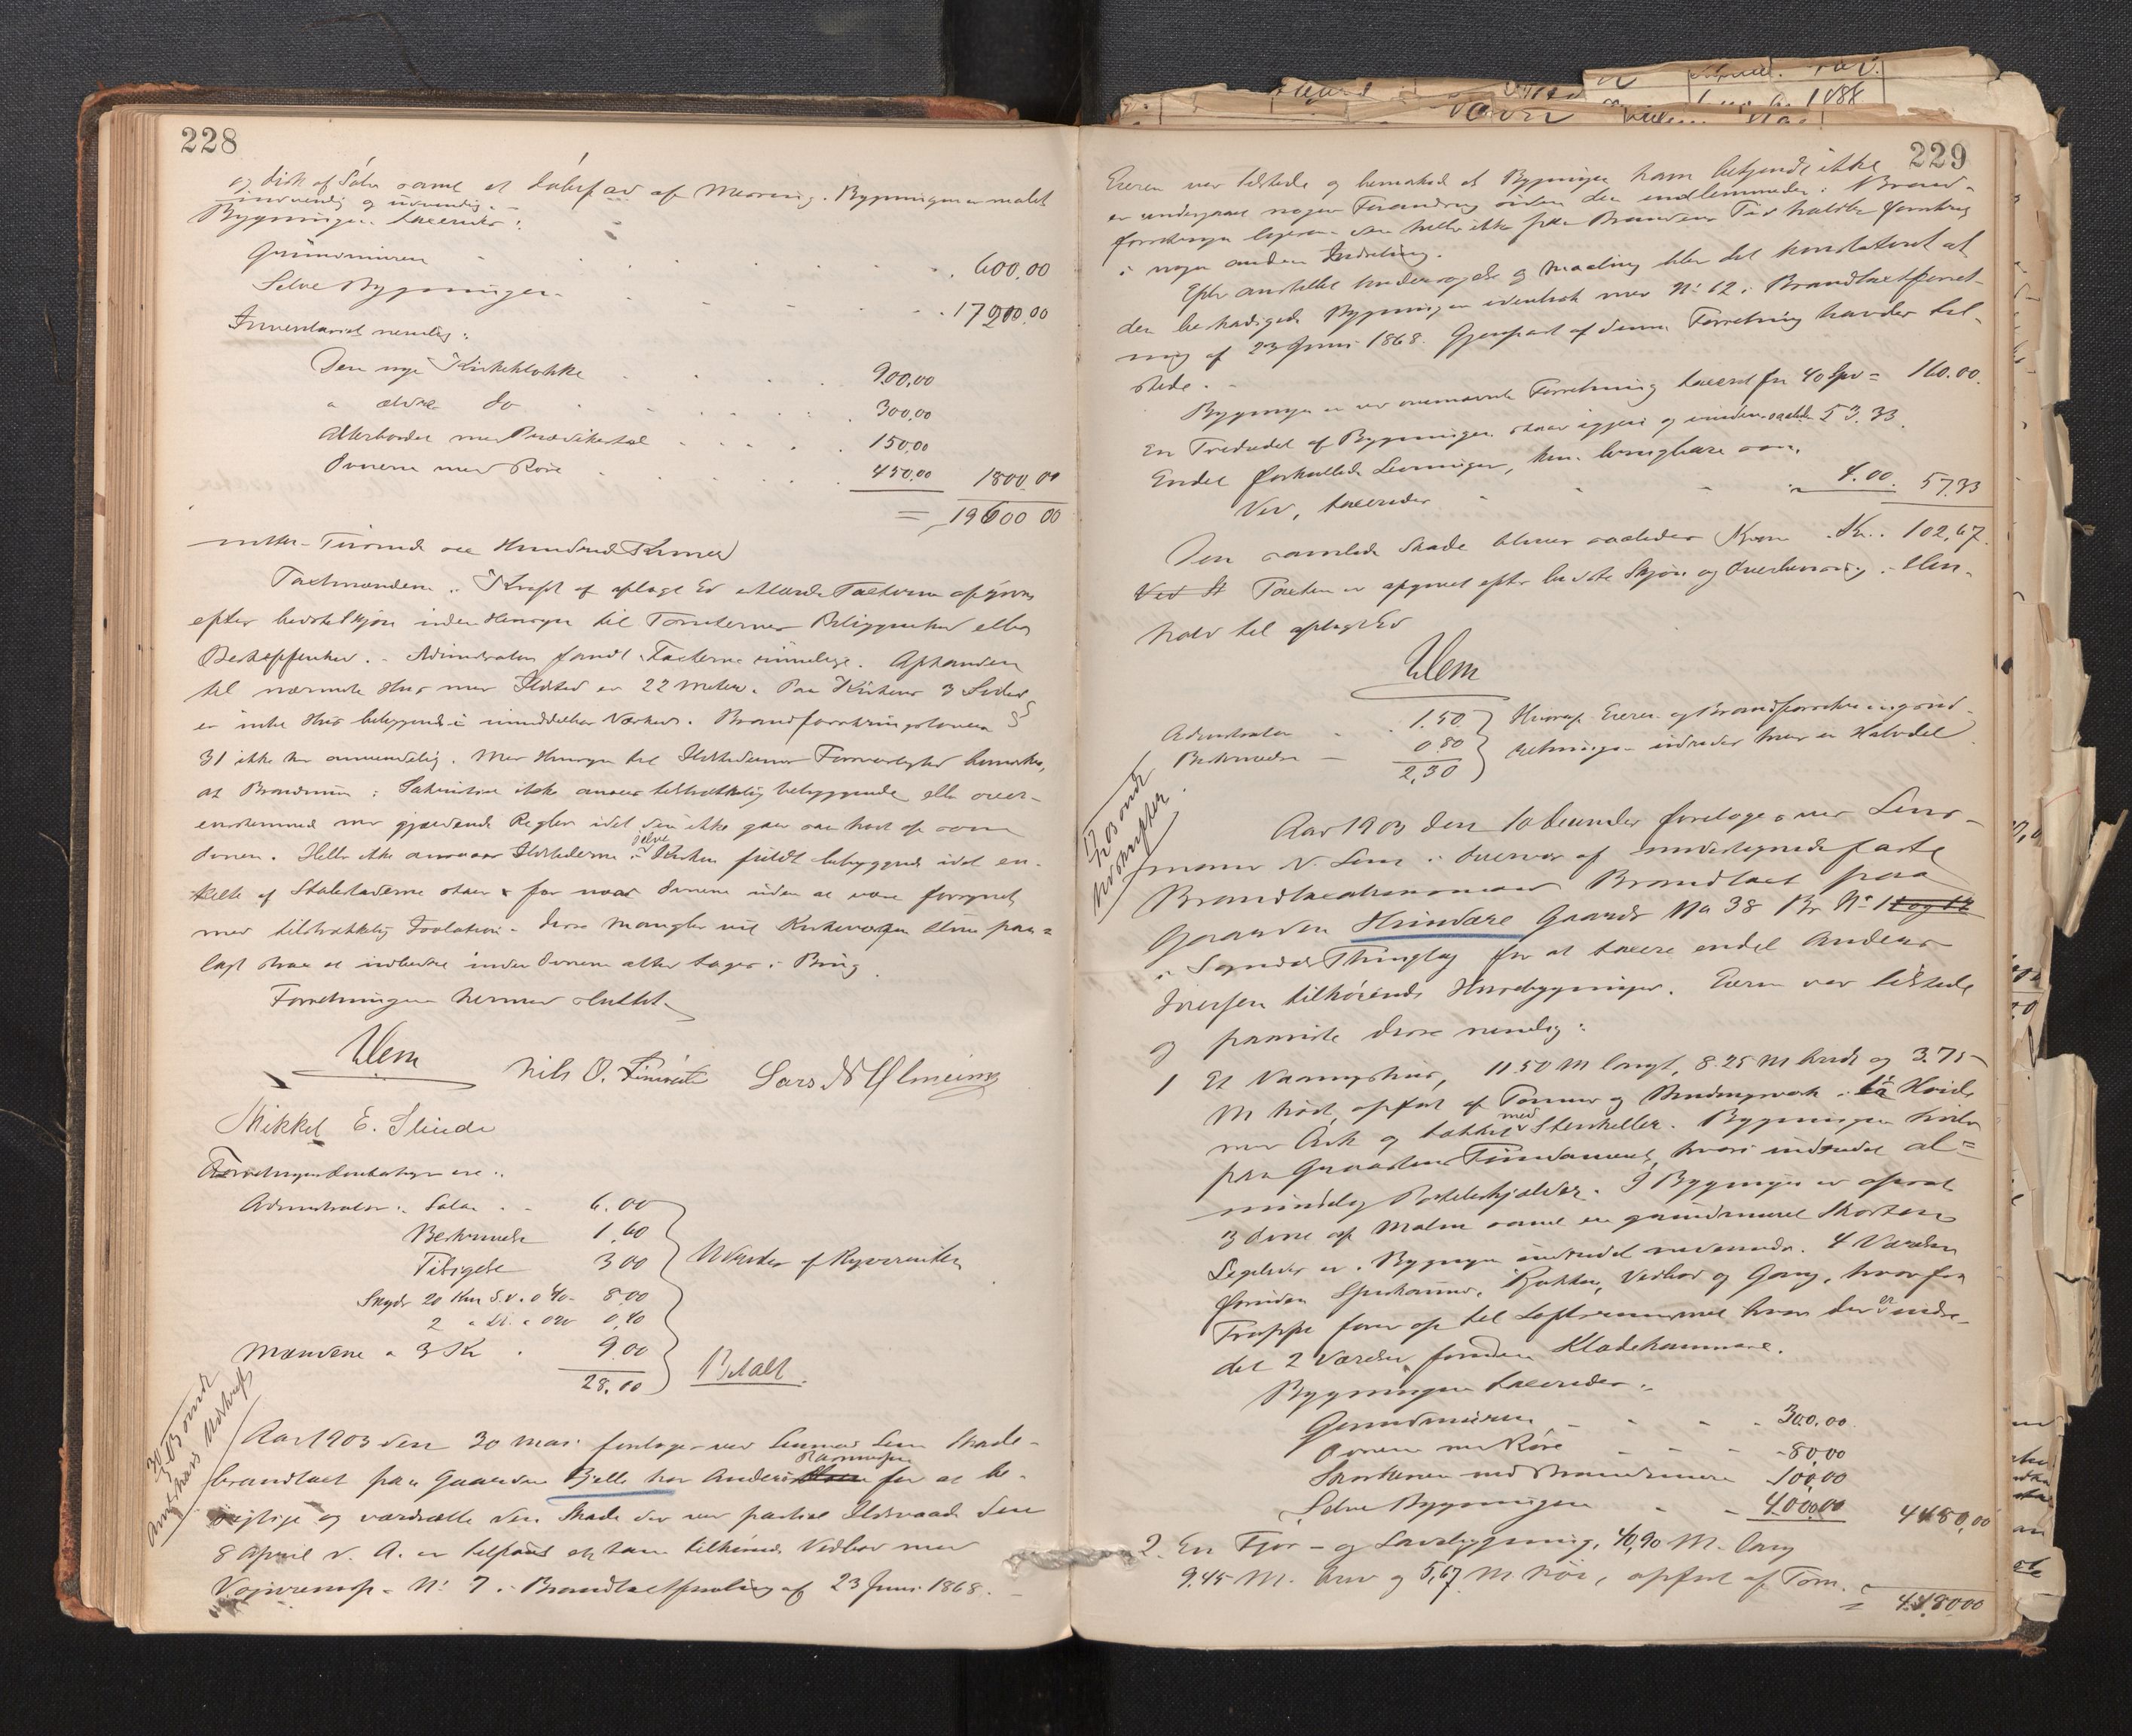 228
og disk af Sølv samt et Døbefad af Messing. Bygningen er malet
indvendig og udvendig. -
Bygningen taxeredes:
Grundmuren 600,00
Selve Bygningen 17200,00
Inventariet nemlig:
Den nye Kirkeklokke 900,00
" ældre do 300,00
Alterbordet med Prædikestol 150,00
Ovnene med Rør 450,00 1800,00
= 19600 00
nitten Tusinde sex Hundred Kroner
Taxtmændene i Kraft af aflagt Ed Taxterne afgivne
efter bedste Skjøn uden Hensyn til Tomternes Beliggenhed eller
Beskaffenhed. - Administrator fandt Taxterne rimelige. Afstanden
til nærmeste Hus med Ildsted er 22 Meter. Paa Kirkens 3 Sider
er intet Hus beliggende i umiddelbar Nærhed. Brandforsikringslovens §
31 ikke her anvendelig. Med Hensyn til Ildstedernes Forsvarlighed bemærkes,
at Brandmuren i Sakristiet ikke ansees tilstrækkelig betryggende eller over-
ensstemmende med gjældende Regler idet den ikke gaar saa høit op som
Ovnen. Heller ikke ansees Ildstederne i selve Kirken fuldt betryggende idet en-
kelte af Stolestaderne staar for nær Ovnene uden at være forsynet
med tilstrækkelig Isolation. Disse Mangler vil Kirkeværgen blive paa-
lagt strax at udbedre inden Ovnene atter tages i Brug.
Forretningen hermed sluttet.
Klem Nils O. Lars N Ølmeim
Mikkel E. Slinde
Forretningens Omkostninger ere:
Administrator: Salær 6.00
Beskrivelse 1,60
Tilsigelse 3 00
Skyds 20 Km S.V. a 0 40 8.00
2 " Do. a 0 20 0,40
Mændene a 3 Kr 9.00
28,00
Betalt
30/5 03 sendt
Amtets Udskrift
Aar 1903 den 30 Mai foretoges ved Lensmand Lem Skade-
brandtaxt paa Gaarden Bjelle hos Anders for at be-
sigtige og værdsætte den Skade der ved partiel Ildsvaade den
8 April d. A. er tilføiet et ham tilhørende Vedbod med
Vognremisse. No 7 i Brandtaxtforretning af 23 Juni 1868. -
229
Eieren var tilstede og bemærkede at Bygningen ham bekjendt ikke
er undergaaet nogen Forandring siden den indlemmedes i Brand-
forsikringen ligesom den heller ikke paa Brandens Tid holdtes forsikret
i nogen anden Indretning.
Efter anstillet Undersøgelse og Maaling blev det konstateret at
den beskadigede Bygningen identisk med No 12 i Brandtaxtforret-
ning af 23 Juni 1868. Gjenpart af denne Forretning havdes til-
stede. -
Bygningen er ved ovennævnte Forretning taxeret for 40 Spd = 160.00.
En Trediedel af Bygningen staar igjen og ansees saaledes 53.33.
Endel forkullede Levninger, kun brugbare som
Ved, taxeredes 4.00. 57.33
Den samlede Skade bliver saaledes Kroner Kr. 102,67.
Taxten er afgivet efter bedste Skjøn og Overbevisning i Hen-
hold til aflagt Ed
Klem
Administrator 1.50
Beskrivelse 0 80
2,30
Hvoraf Eieren og Brandforsikringsind-
retningen udreder hver en Halvdel
17/6 03 sendt
Udskrifter
Aar 1903 den 10 December foretoges ved Lens-
mann N. Lem i Overvær af undertegnede faste
Brandtaxationsmænd Brandtaxt paa
Gaarden Hundere Gaards No 38 Br. No 1 og 12
i Sogndal Thinglag for at taxere endel Anders
Iversen tilhørende Husebygninger. Eieren var tilstede
og paaviste disse nemlig:
1 Et Vaaningshus, 11.50 M langt, 8.25 M bredt og 3.75
M høit, opført af Tømmer og Bindingsverk i Høide
med Ark og takket med Stenheller. Bygningen hviler
paa Graastens Fundament, hvori indredet al-
mindelig Potetskjælder. I Bygningen er opsat
3 Ovne af Malm samt en grundmuret Skorsten
Ligeledes er Bygningen indredet nedenunder 4 Værelser
foruden Spisekammer, Kjøkken, Vedbod og Gang, hvorfra
Trappe fører op til Loftsrummet hvor der er indre-
det 2 Værelser foruden Klædekammere.
Bygningen taxeredes:
Grundmuren 300,00
Ovnene med Rør 80,00
Skorstenen med Brandmure 100,00
Selve Bygningen 4000,00 4480,00
2. En Fjøs- og Løebygning, 40,90 M. lang
9.45 M. bred og 5,67 M høi, opført af Tøm-
= 4480,00